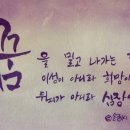 꿈
을 밀고 나가는
이성이 아니라 희망이
두뇌가 아니라 심장